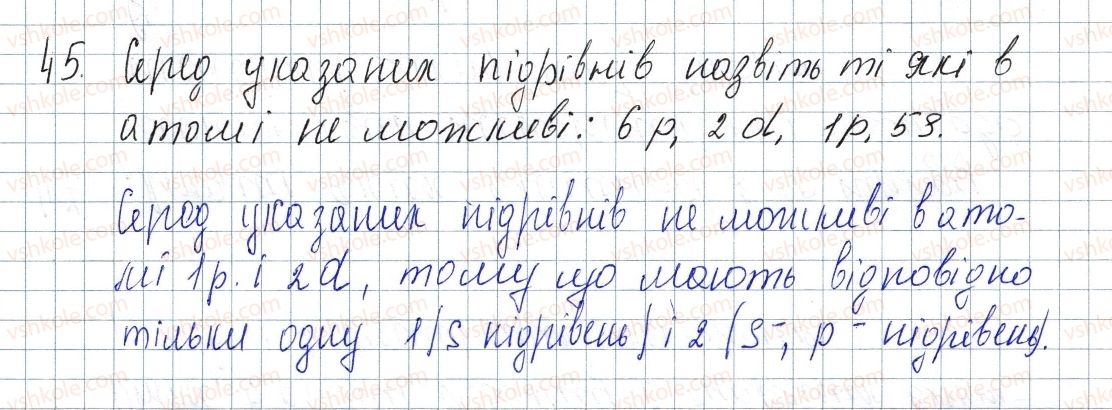 45. Серед указаних підрівнів назвіть ті які в
атомі не можливі: 6p, 2d, 1p, 5s.
Серед указаних підрівнів не можливі в ато-
мі 1p. і 2d, тому що мають відповідно
тільки одну 1/s підрівень/ і 2 /s-, p- підрівень/.